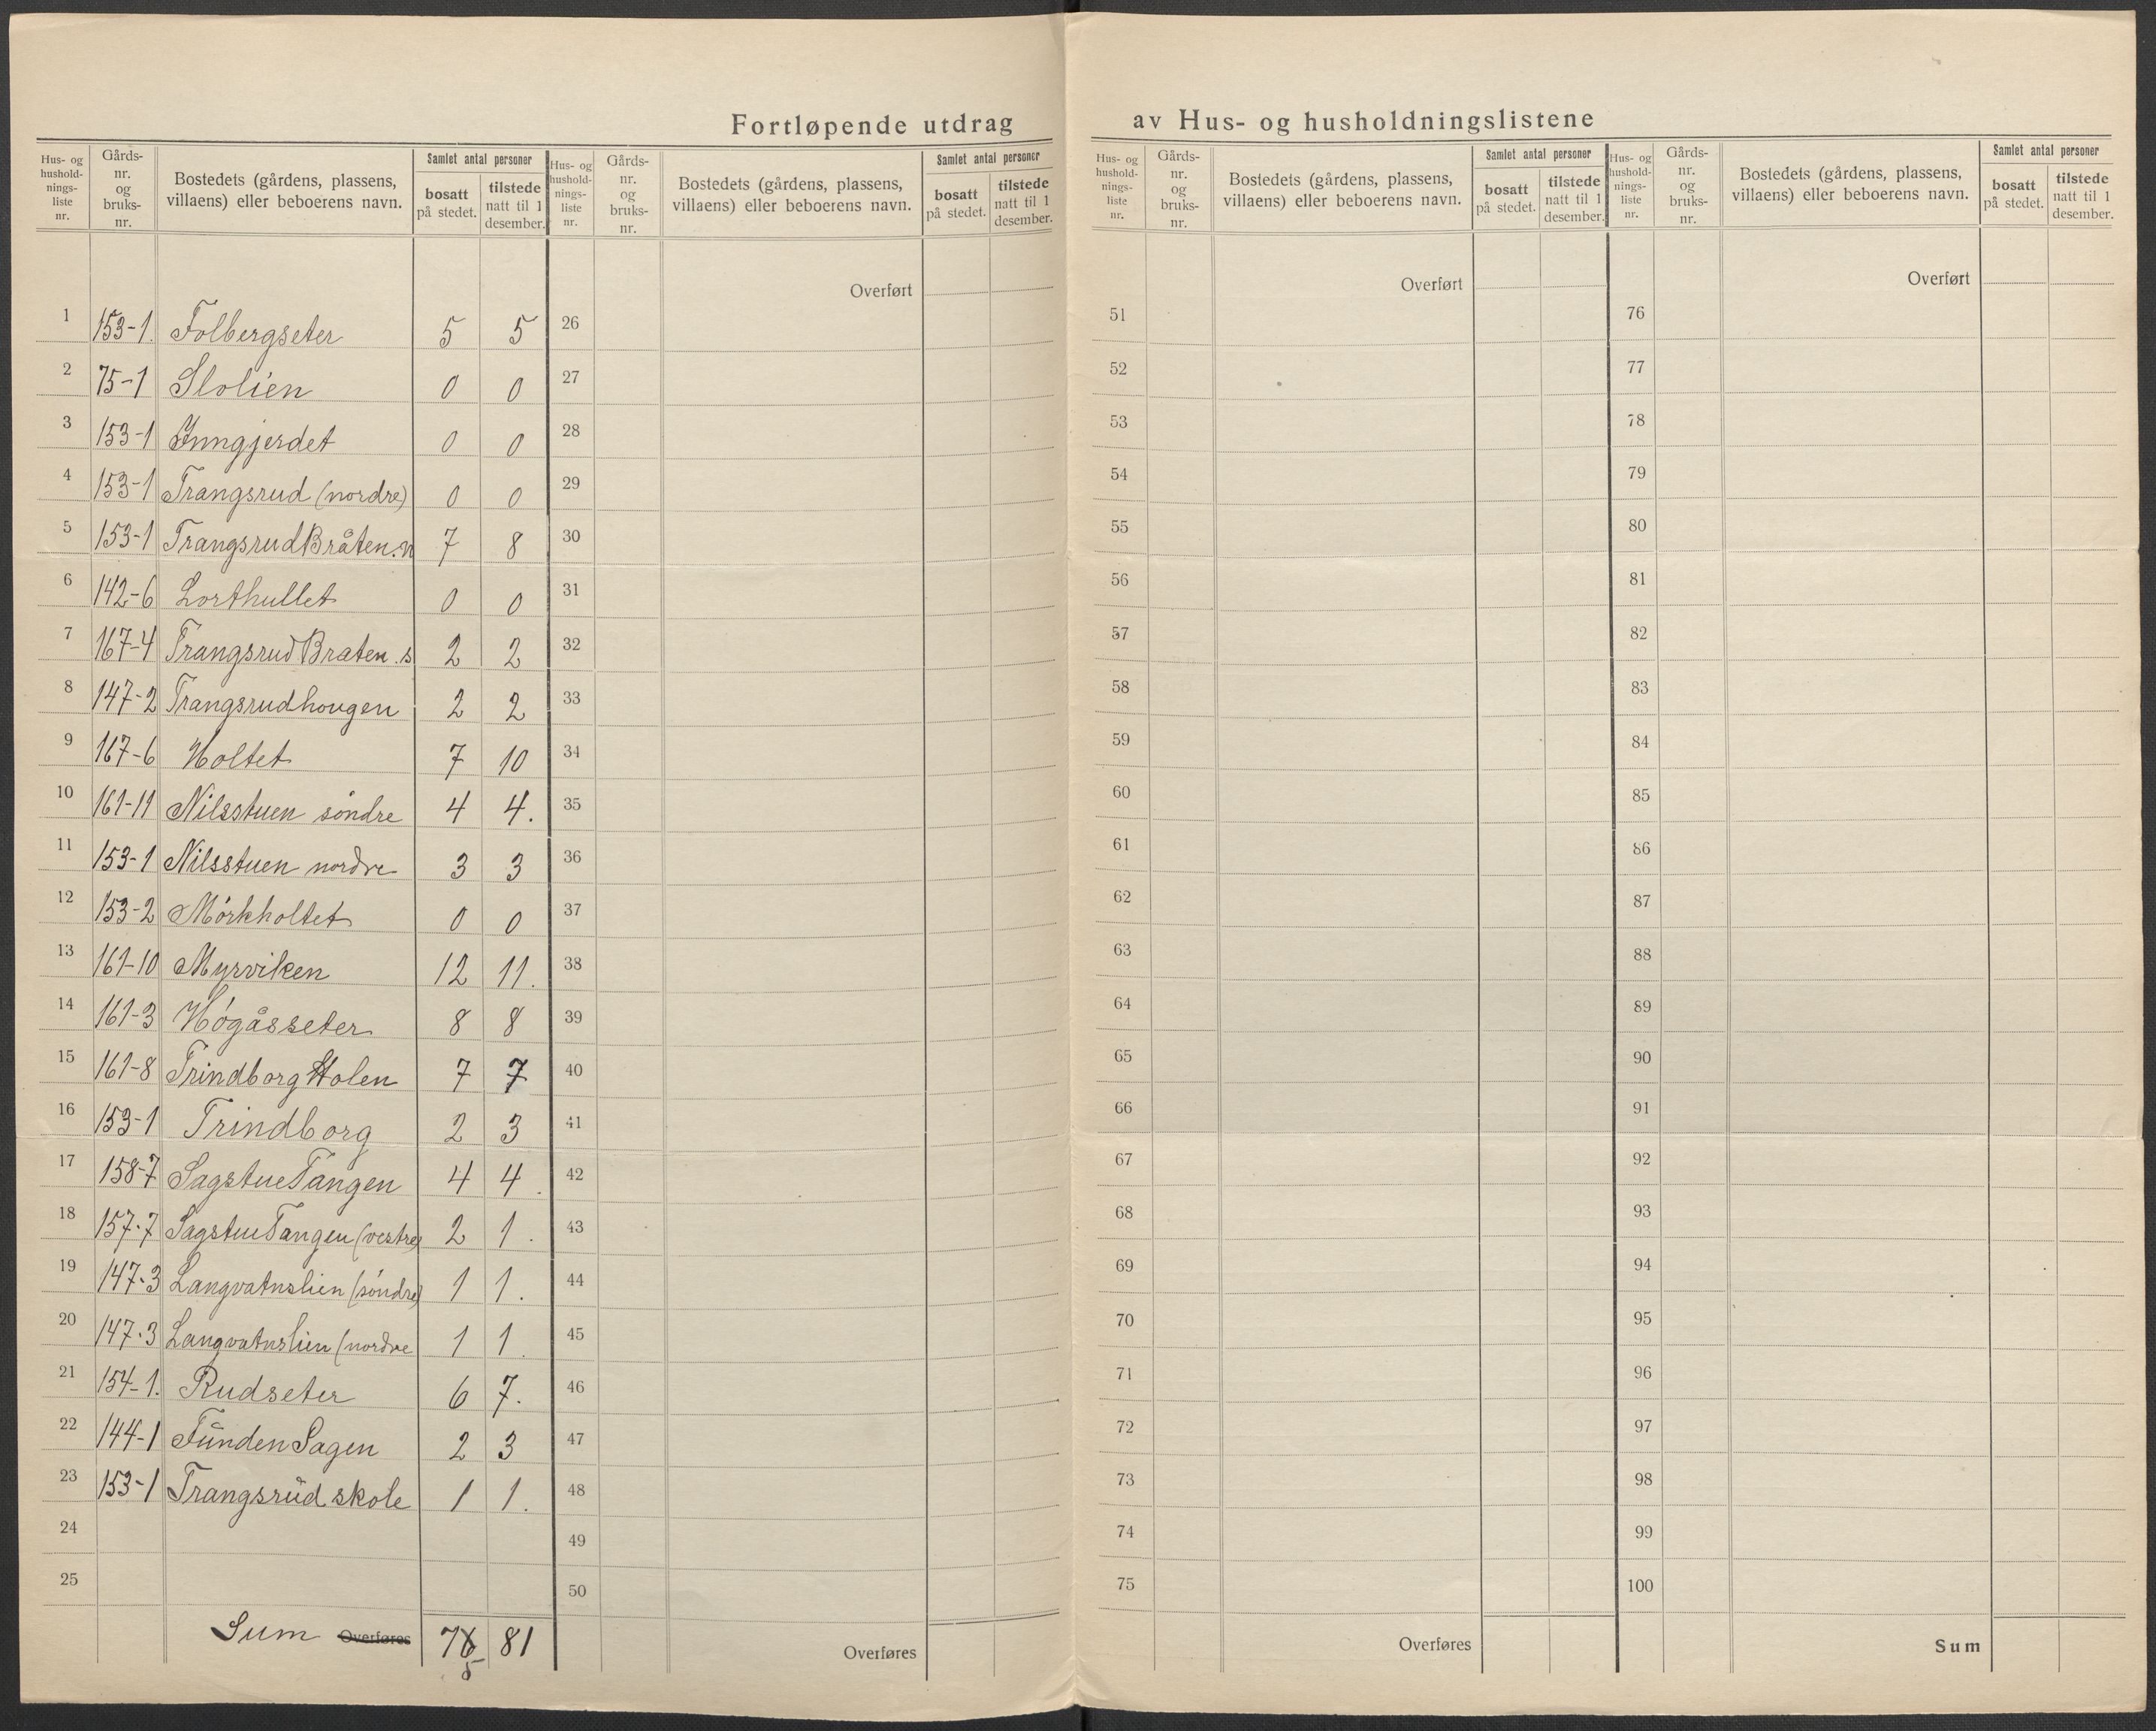 Fortløpende utdrag av Hus- og husholdningslistene
Hus- og hushold- nings- liste nr. | Gårds- nr. og bruks- nr. | Bostedets (gårdens, plassens, villaens) eller beboerens navn. | Samlet antal personer | bosatt på stedet. | tilstede natt til 1 desember.
1 153-1. Folbergseter 5 5
2 75-1 Slolien 0 0
3 153-1 Inngjerdet 0 0
4 153-1 Trangsrud (nordre) 0 0
5 153-1 Trangsrud Bråten. n 7 8
6 142-6 Lorthullet 0 0
7 167-4 Trangsrud Braten. s 2 2
8 147-2 Trangsrudhougen 2 2
9 167-6 Holtet 7 10
10 161-11 Nilsstuen söndre 4 4.
11 153-1 Nilsstuen nordre 3 3
12 153-2 Mórkholtet 0 0
13 161-10 Myrviken 12 11.
14 161-3 Högåsseter 8 8
15 161-8 Trindborg Holen 7 7
16 153-1 Trindborg 2 3
17 158-7 Sagstue Tangen 4 4.
18 157-7 Sagstue Tangen (vestre) 2 1.
19 147-3 Langvatnslien (söndre) 1 1.
20 147-3 Langvatnslien (nordre 1 1.
21 154-1. Rudseter 6 7.
22 144-1 Fünden Sagen 2 3
23 153-1 Trangsrüd skole 1 1.
24
25
Sum Overføres 76 81
5
Hus- og hushold- nings- liste nr. | Gårds- nr. og bruks- nr. | Bostedets (gårdens, plassens, villaens) eller beboerens navn. | Samlet antal personer | bosatt på stedet. | tilstede natt til 1 desember.
Overført
26
27
28
29
30
31
32
33
34
35
36
37
38
39
40
41
42
43
44
45
46
47
48
49
50
Overføres
Hus- og hushold- nings- liste nr. | Gårds- nr. og bruks- nr. | Bostedets (gårdens, plassens, villaens) eller beboerens navn. | Samlet antal personer | bosatt på stedet. | tilstede natt til 1 desember.
Overført
51
52
53
54
55
56
57
58
59
60
61
62
63
64
65
66
67
68
69
70
71
72
73
74
75
Overføres
Hus- og hushold- nings- liste nr. | Gårds- nr. og bruks- nr. | Bostedets (gårdens, plassens, villaens) eller beboerens navn. | Samlet antal personer | bosatt på stedet. | tilstede natt til 1 desember.
Overført
76
77
78
79
80
81
82
83
84
85
86
87
88
89
90
91
92
93
94
95
96
97
98
99
100
Sum